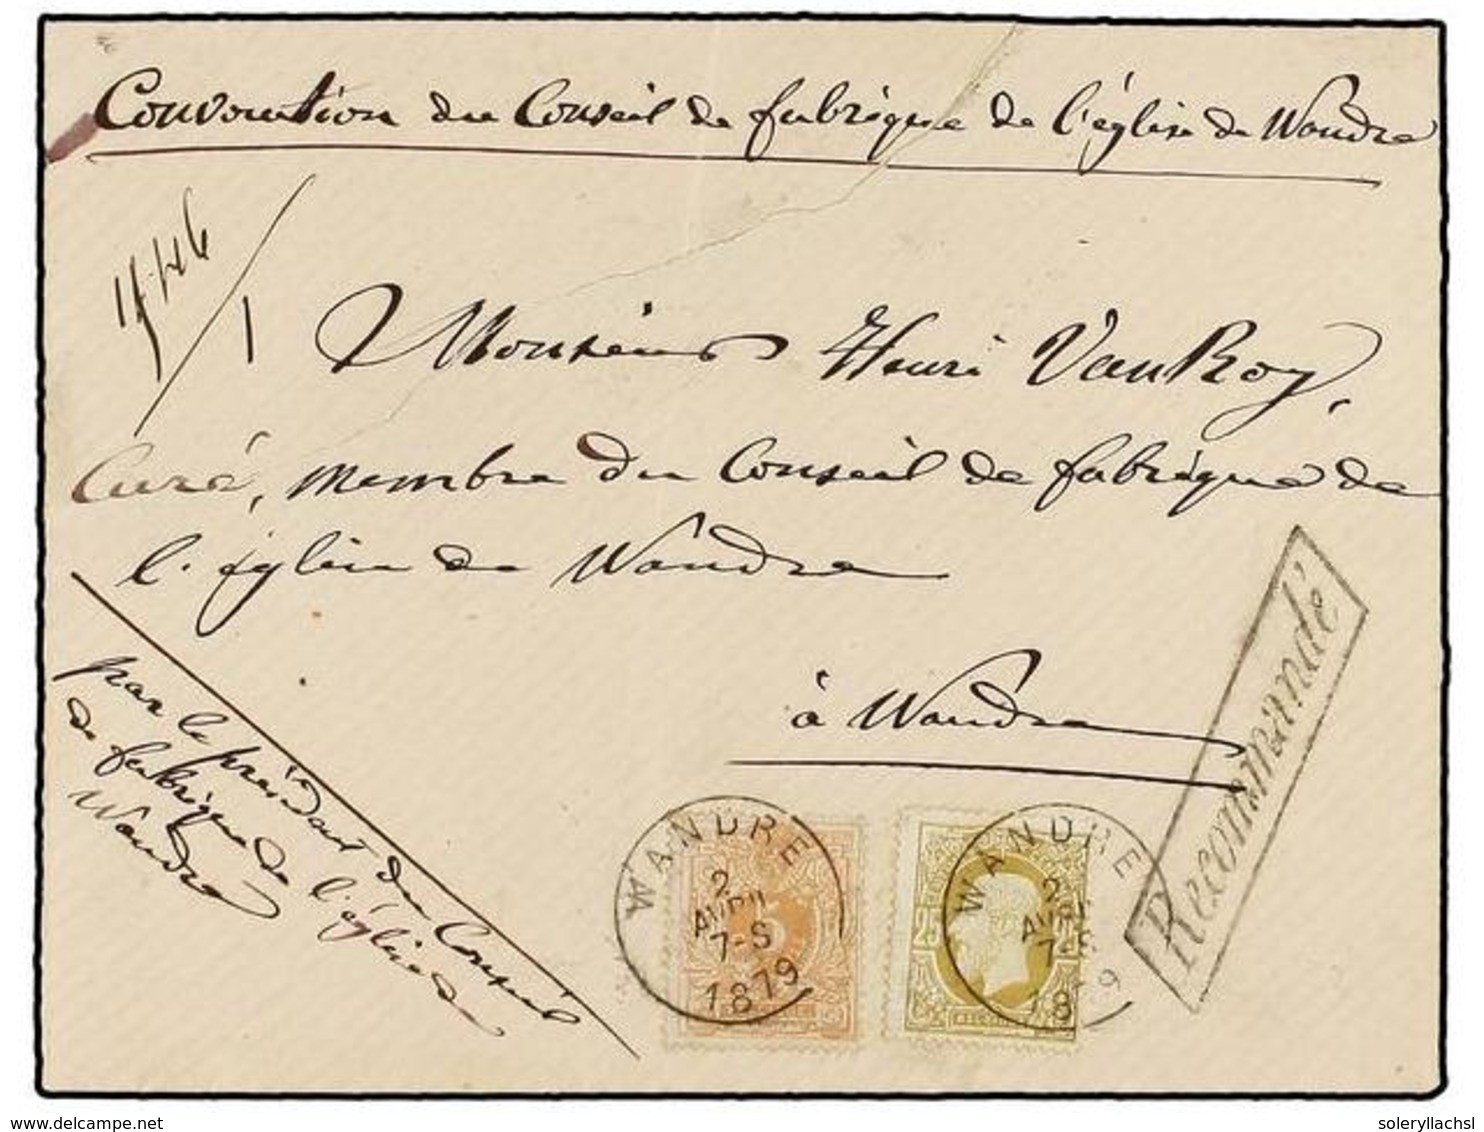 Convocation du Conseil de fabrique de l'église de Wandre
1
Monsieur Henri Van Roy,
Curé, membre du Conseil de fabrique de
l'église de Wandre
à Wandre
par le président du Conseil
de fabrique de l'église de
Wandre
Recommandé
WANDRE
2
AVRIL
7-S
1879
WANDRE
2
7-S
25
delcampe.net
soleryllachsl